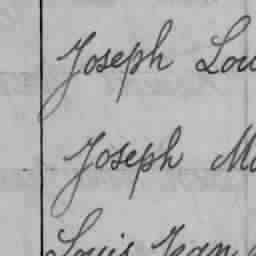 Joseph Lou
Joseph Ma
Louis Jean